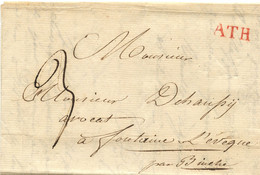 ATH
Monsieur
Monsieur Dehaussÿ
avocat
à fontaine L'évêque
par Binche